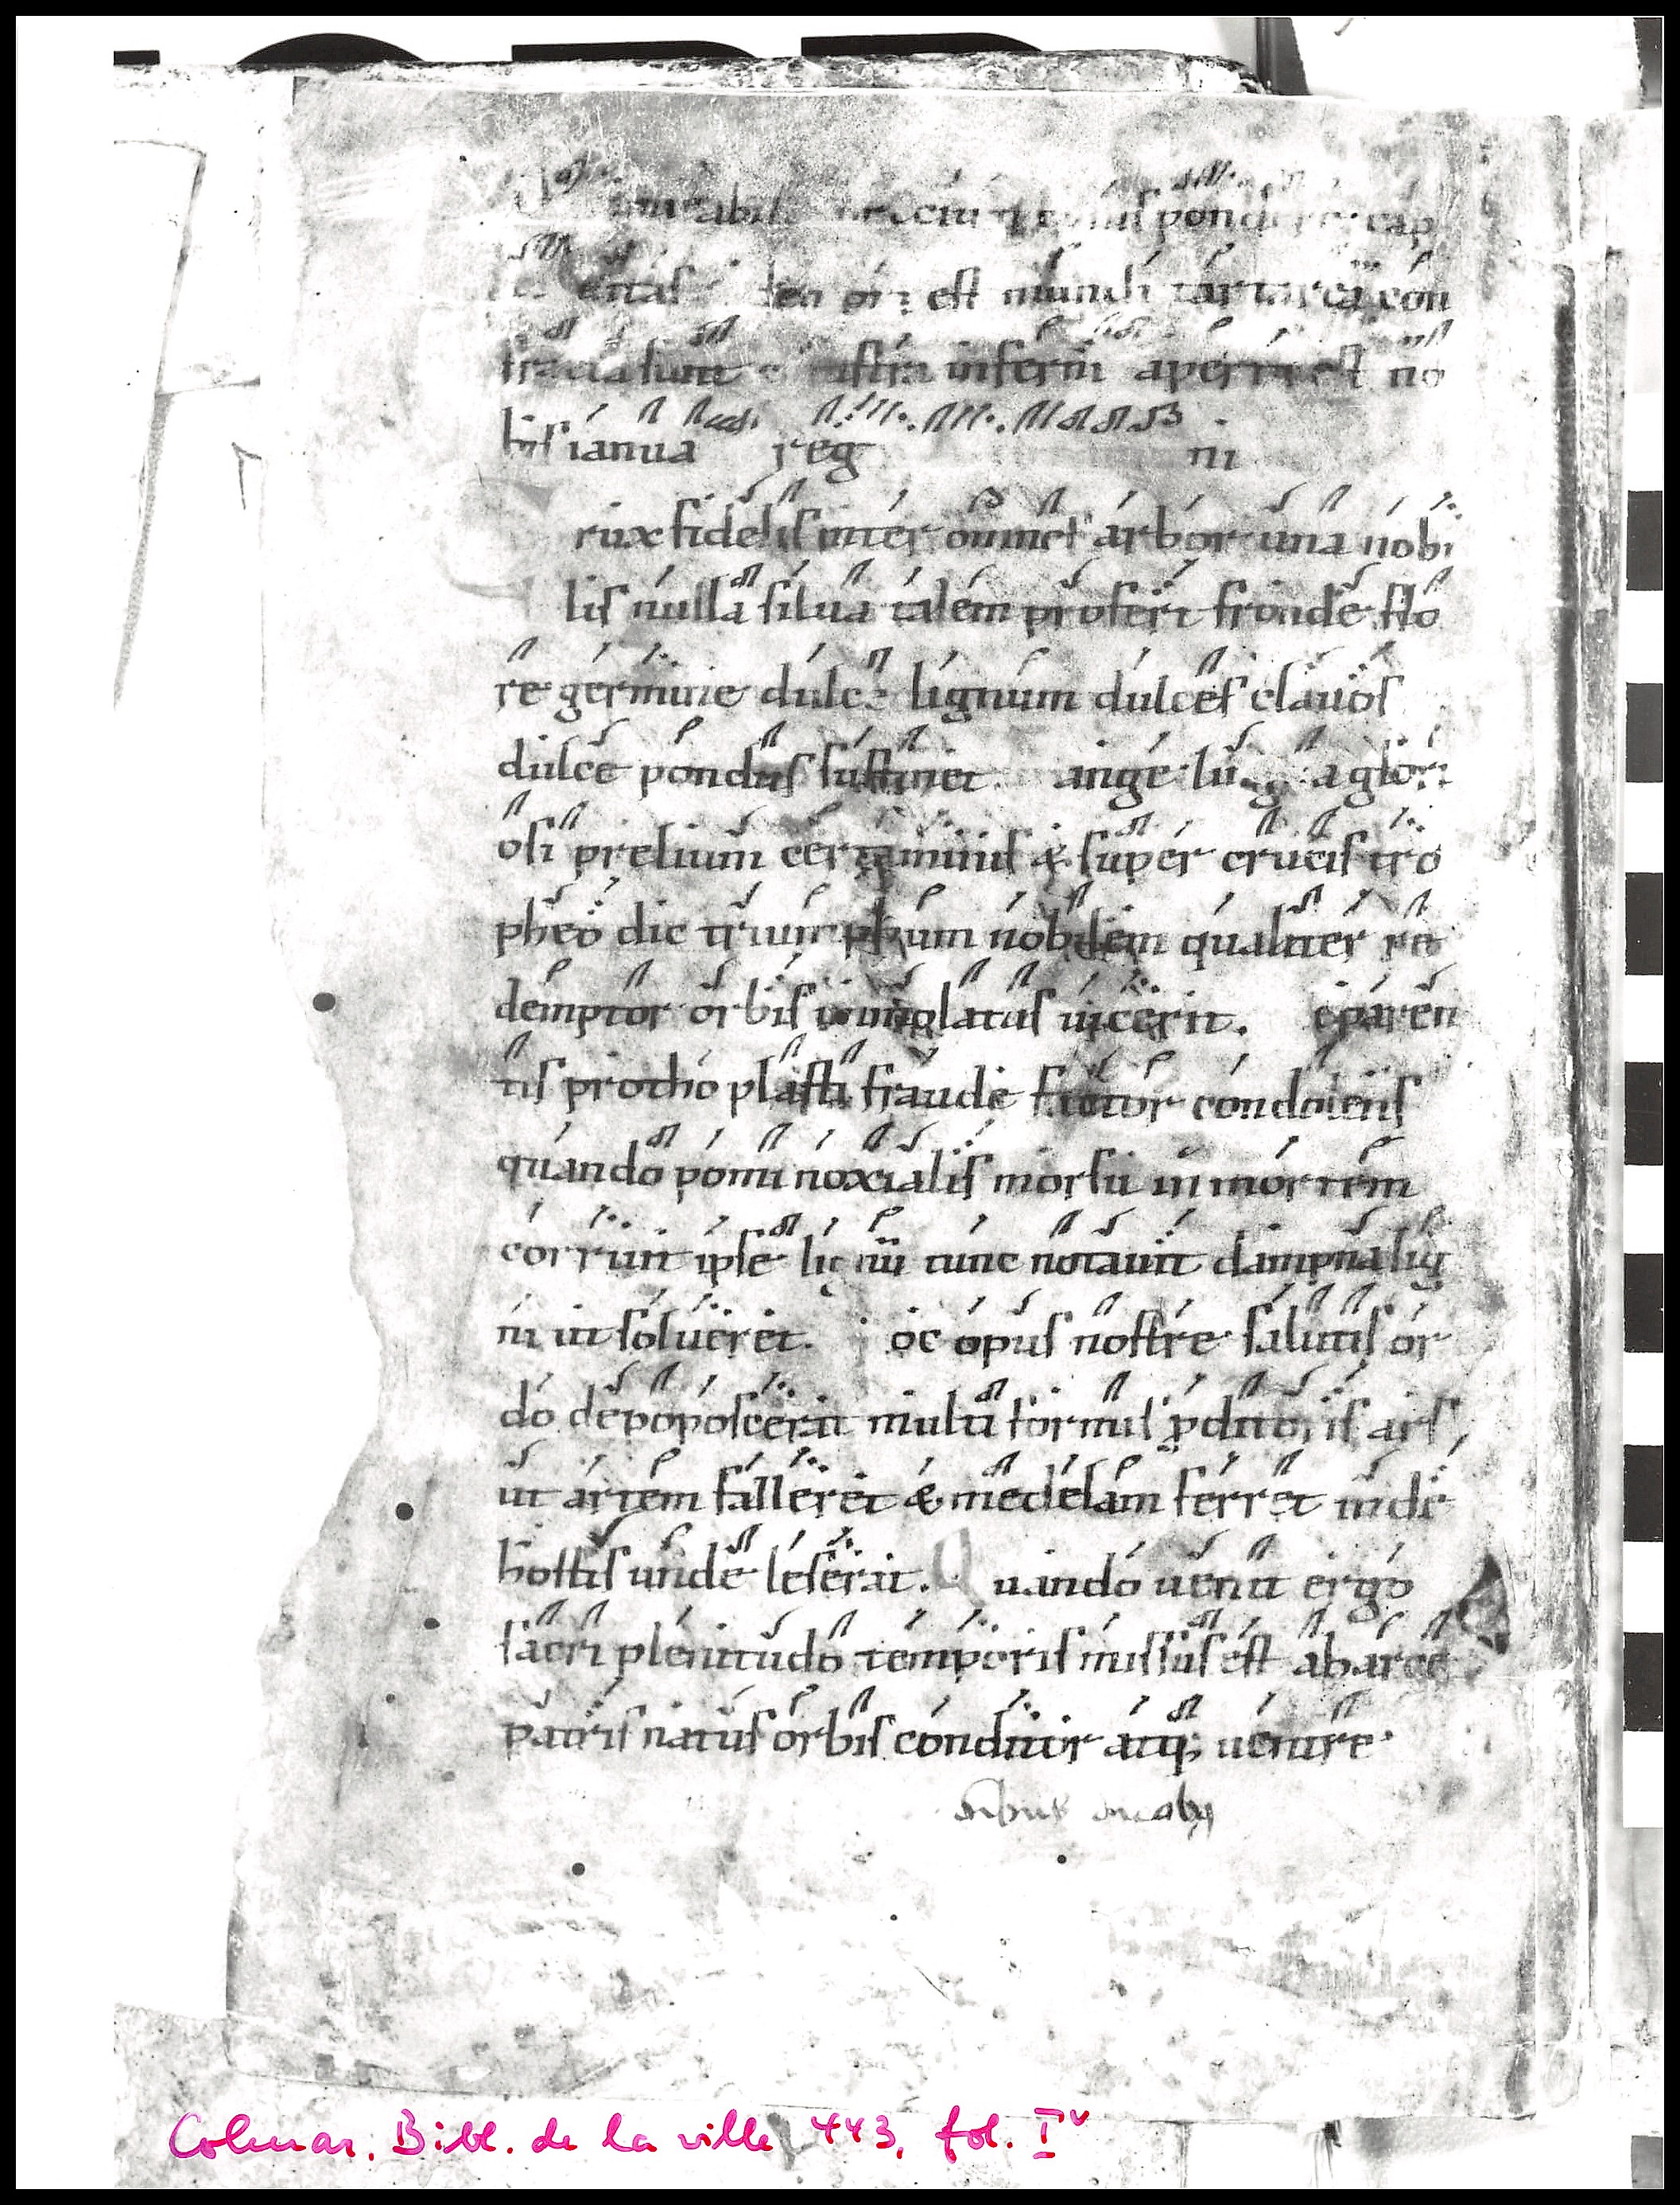 pond cap
est mundi tartarea con
fracta sunt inferni aperta est no
bis ianua reg ni
rux fidelis inter omnes arbor una nobi
lis nulla silua talem profert fronde flo
re germine dulce lignum dulces clauos
dulce pondus sustinet. ange lingua glori
osi prelium certaminis & super crucis tro
pheo dic triumphum nobilem qualiter re
demptor orbis immolatus uicerit. e paren
tis protho plasti fraude factor condolens
quando pomi noxialis morsu in mortem
corruit ipse lignū tunc notauit dampna lig
ni ut solueret. oc opus nostre salutis or
do depoposcerat multi formis ꝓditoris ars
ut artem falleret & medelam ferret inde
hostis unde leserat. Quando uenit ergo
sacri plenitudo temporis missus est ab arce
patris natus orbis conditor atq; uentre
Colmar. Bibl. de la ville 443, fol. Iv